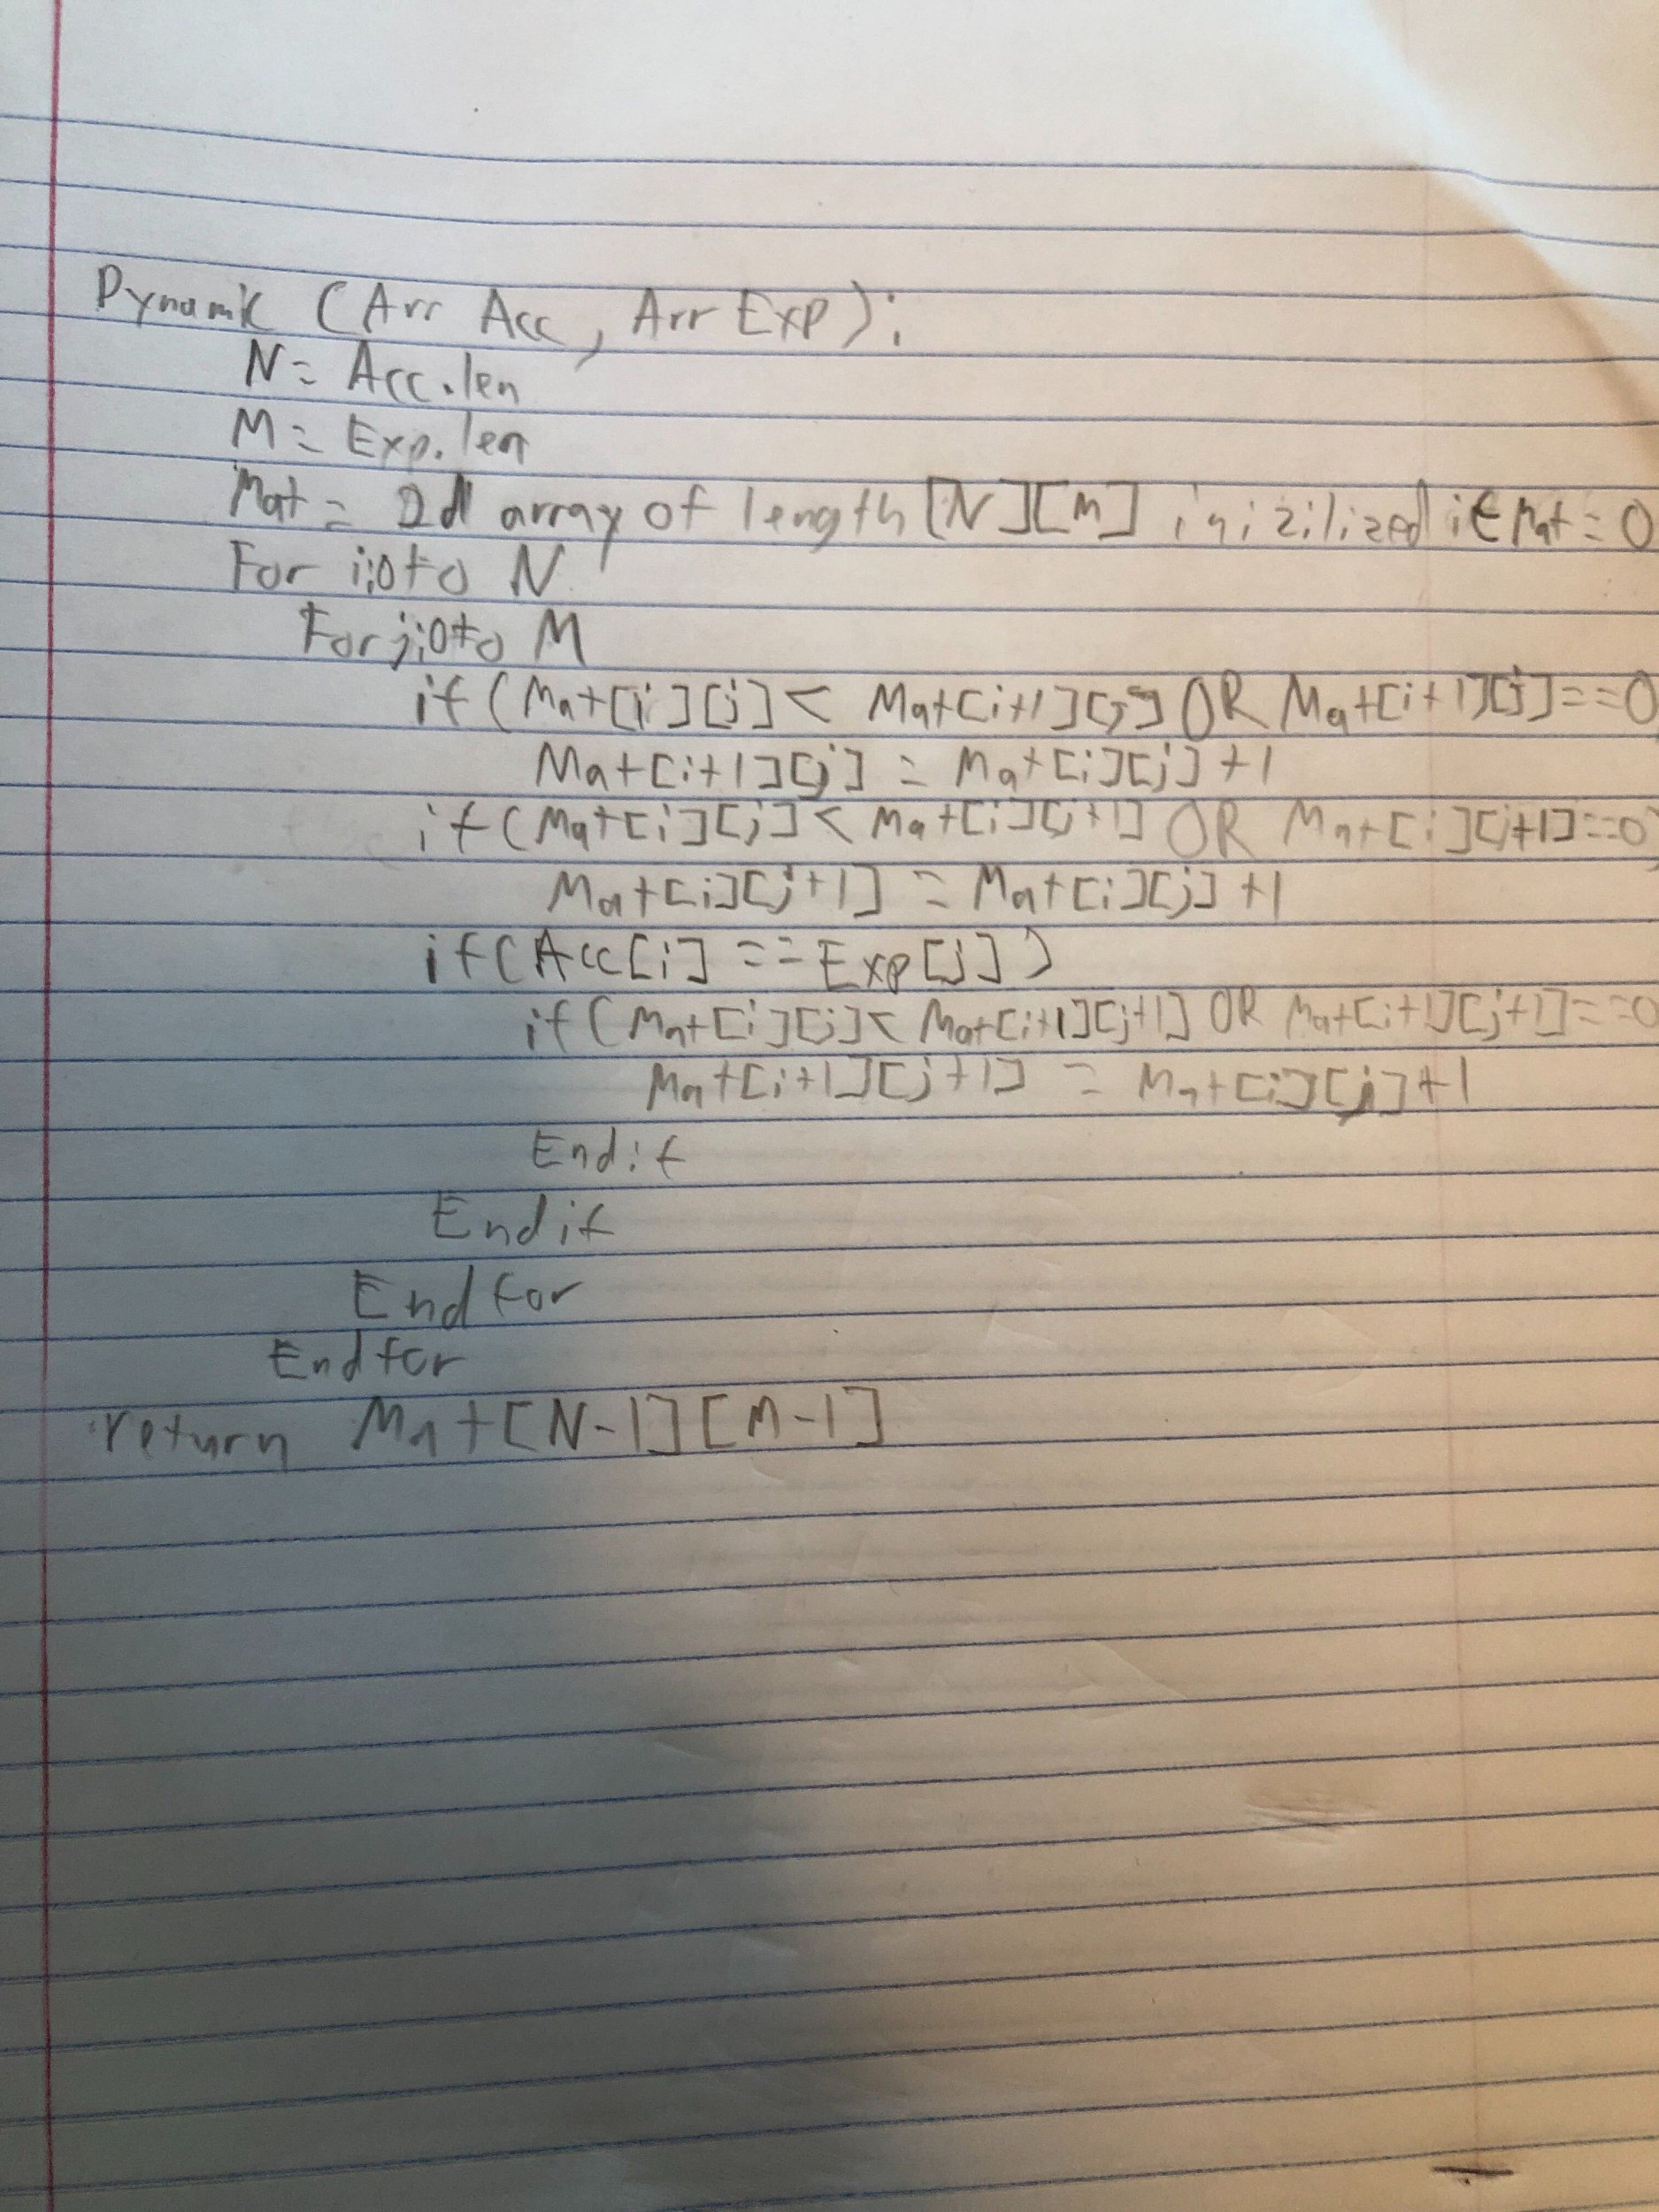 Dynamic (Arr Acc, Arr Exp):
N = Acc.len
M = Exp.len
Mat = 2d array of length [N][M] inizilized i∈Mat = 0
For i:0 to N
For j:0 to M
if (Mat[i][j] < Mat[i+1][j] OR Mat[i+1][j]==0
Mat[i+1][j] = Mat[i][j] +1
if (Mat[i][j] < Mat[i][j+1] OR Mat[i][j+1]==0)
Mat[i][j+1] = Mat[i][j] +1
if (Acc[i] == Exp[j])
if (Mat[i][j] < Mat[i+1][j+1] OR Mat[i+1][j+1]==0
Mat[i+1][j+1] = Mat[i][j] +1
Endif
Endif
End for
End for
return Mat[N-1][M-1]